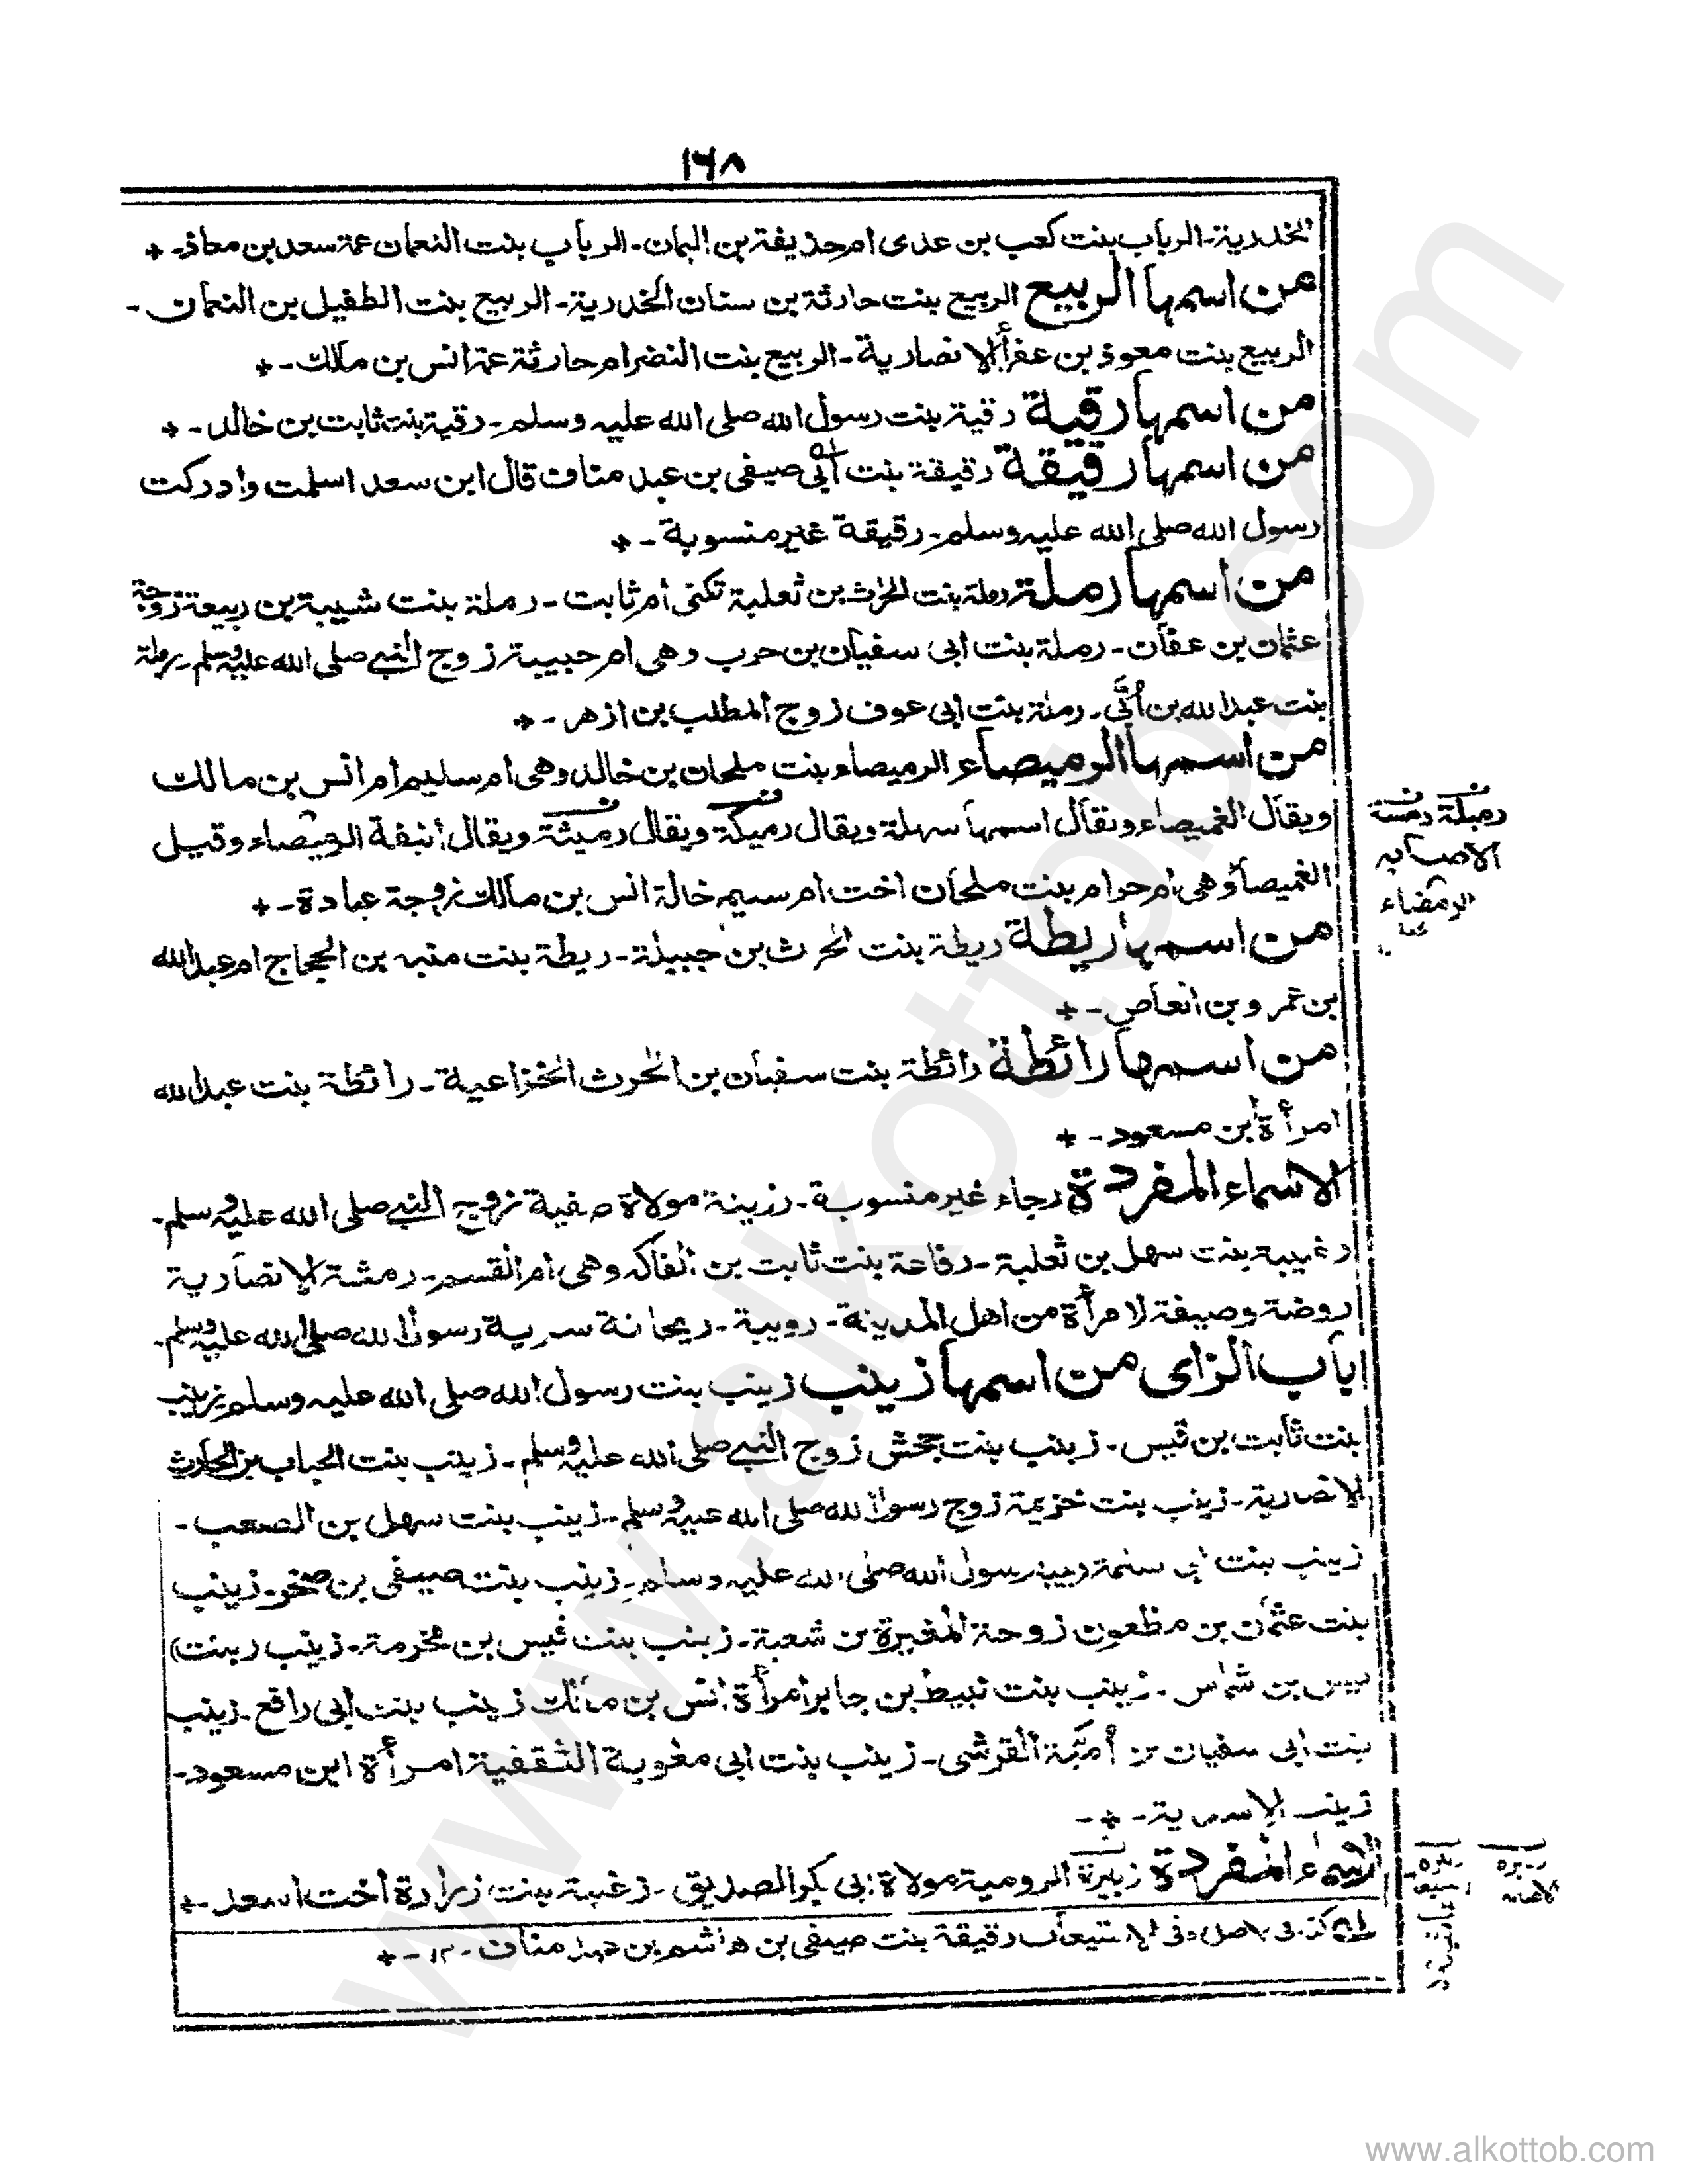 ١٦٨
الخدرية۔ الرباب بنت كعب بن عدى ام حذيفة بن اليمان۔ الرباب بنت النعمان عمة سعد بن معاذ۔ +
من اسمها الربيع الربيع بنت حارثة بن سنان الخدرية۔ الربيع بنت الطفيل بن النعمان۔
الربيع بنت معوذ بن عفرأ الانصارية۔ الربيع بنت النضر ام حارثة عمة انس بن ملك۔ +
من اسمها رقية رقية بنت رسول الله صلى الله عليه وسلم۔ رقية بنت ثابت بن خالد۔ +
من اسمها رقيقة رقيقة بنت أبي صيفى بن عبد مناف قال ابن سعد اسلمت وادركت
رسول الله صلى الله عليه وسلم۔ رقيقة غير منسوبة۔ +
من اسمها رملة رملة بنت الحرث بن ثعلبة تكنى ام ثابت۔ رملة بنت شيبة بن ربيعة زوجة
عثمان بن عفان۔ رملة بنت ابى سفيان بن حرب وهى ام حبيبة زوج النبي صلى الله عليه وسلم۔ رملة
بنت عبد الله بن أبَّي۔ رملة بنت ابى عوف زوج المطلب بن ازهر۔ +
من اسمها الرميصاء الرميصاء بنت ملحان بن خالد وهى ام سليم ام انس بن مالك
ويقال الغميصاء ويقال اسمها سهلة ويقال رميكة ويقال رميثة ويقال أنيفة الرميصاء وقيل
الغميصاء وهى ام حرام بنت ملحان اخت ام سليم خالة انس بن مالك زوجة عبادة۔ +
رميلة رمسة
الاصابه
الرمضاء
من اسمها ريطة ريطة بنت الحرث بن جبيلة۔ ريطة بنت منبه بن الحجاج ام عبد الله
بن عمرو بن العاص۔ +
من اسمها رائطة رائطة بنت سفيان بن الحرث الخزاعية۔ رائطة بنت عبد الله
امرأة ابن مسعود۔ +
الاسماء المفردة رجاء غير منسوبة۔ رزينة مولاة صفية زوج النبي صلى الله عليه وسلم۔
رغيبة بنت سهل بن ثعلبة۔ رفاعة بنت ثابت بن الفاكه وهى ام القسم۔ رمشة الانصارية
روضة وصيفة لامرأة من اهل المدينة۔ روبية۔ ريحانة سرية رسول الله صلى الله عليه وسلم۔
باب الزاى من اسمها زينب زينب بنت رسول الله صلى الله عليه وسلم زينب
بنت ثابت بن قيس۔ زينب بنت جحش زوج النبي صلى الله عليه وسلم۔ زينب بنت الحباب بن الحارث
الانصارية۔ زينب بنت خزيمة زوج رسول الله صلى الله عليه وسلم۔ زينب بنت سهل بن الصعب۔
زينب بنت ابى سلمة ربيبة رسول الله صلى الله عليه وسلم۔ زينب بنت صيفى بن صخر۔ زينب
بنت عثمان بن مظعون زوجة المغيرة بن شعبة۔ زينب بنت قيس بن مخرمة۔ زينب (بنت)
قيس بن شماس۔ زينب بنت نبيط بن جابر امرأة انس بن مالك زينب بنت ابى رافع۔ زينب
بنت ابى سفيان بن أميّة القرشى۔ زينب بنت ابى معوية الثقفية امرأة ابن مسعود۔
زينب الاسدية۔ + ۔
الاسماء المفردة زبيرة الرومية مولاة ابى بكر الصديق۔ زغيبة بنت زرارة اخت اسعد۔ +
كذ فى الاصل وفى الاستيعاب رقيقة بنت صيفى بن هاشم بن عبد مناف۔ ١٢۔ +
www.alkottob.com
www.alkottob.com